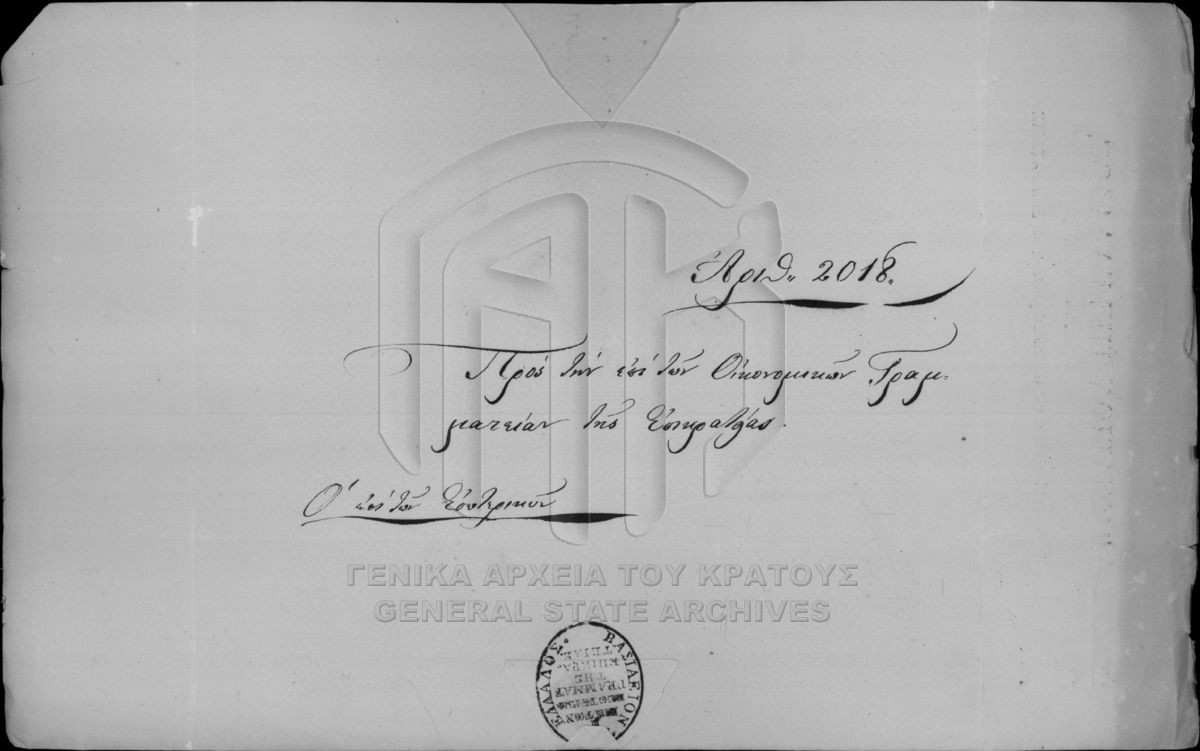 Ἀριθ. 2018.
Πρὸς τὴν ἐπὶ τῶν Οἰκονομικῶν Γραμ-
ματείαν τῆς Ἐπικρατείας.
Ὁ ἐπὶ τῶν Ἐσωτερικῶν
ΓΕΝΙΚΑ ΑΡΧΕΙΑ ΤΟΥ ΚΡΑΤΟΥΣ
GENERAL STATE ARCHIVES
ΒΑΣΙΛΕΙΟΝ ΕΛΛΑΔΟΣ
ΓΡΑΜΜΑΤ
ΤΗΣ
ΕΠΙΚΡΑ
ΤΕΙΑΣ